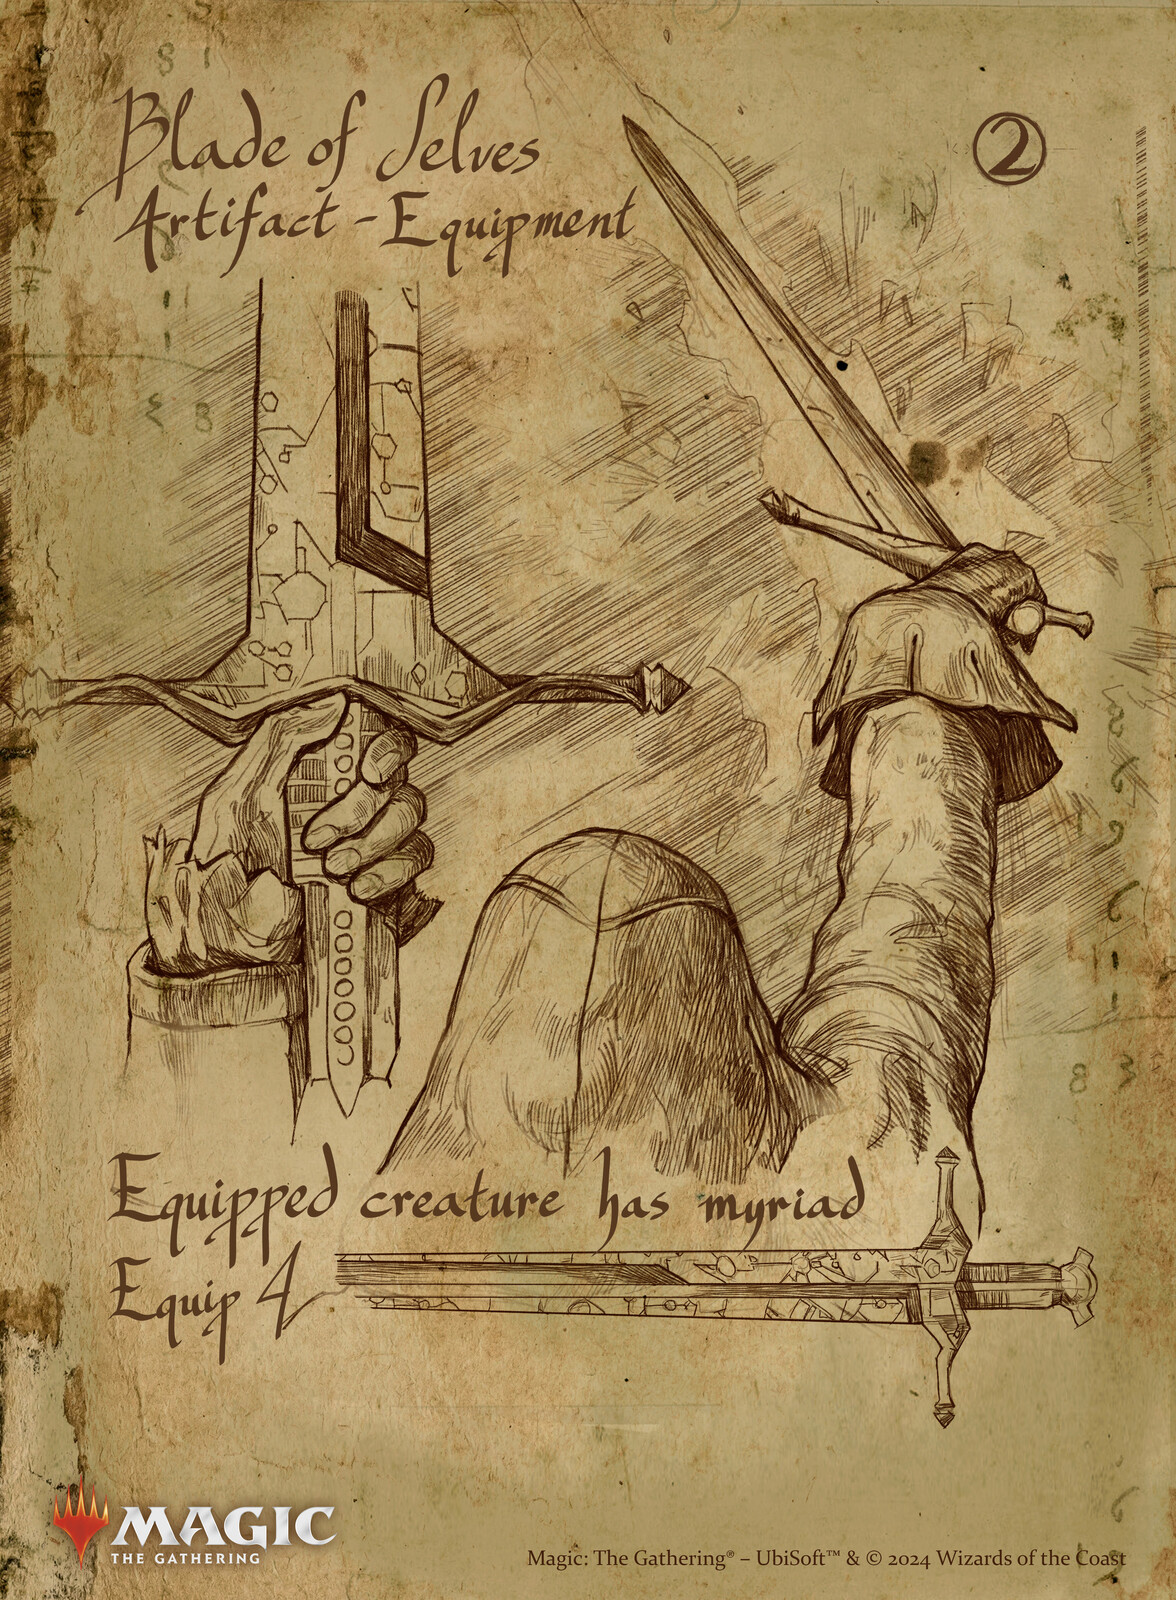 Blade of Selves
2
Artifact - Equipment
Equipped creature has myriad
Equip 4
MAGIC
THE GATHERING
Magic: The Gathering® – UbiSoft™ & © 2024 Wizards of the Coast